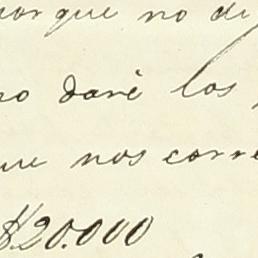 porque no di
no daré los
que nos corre
$20.000